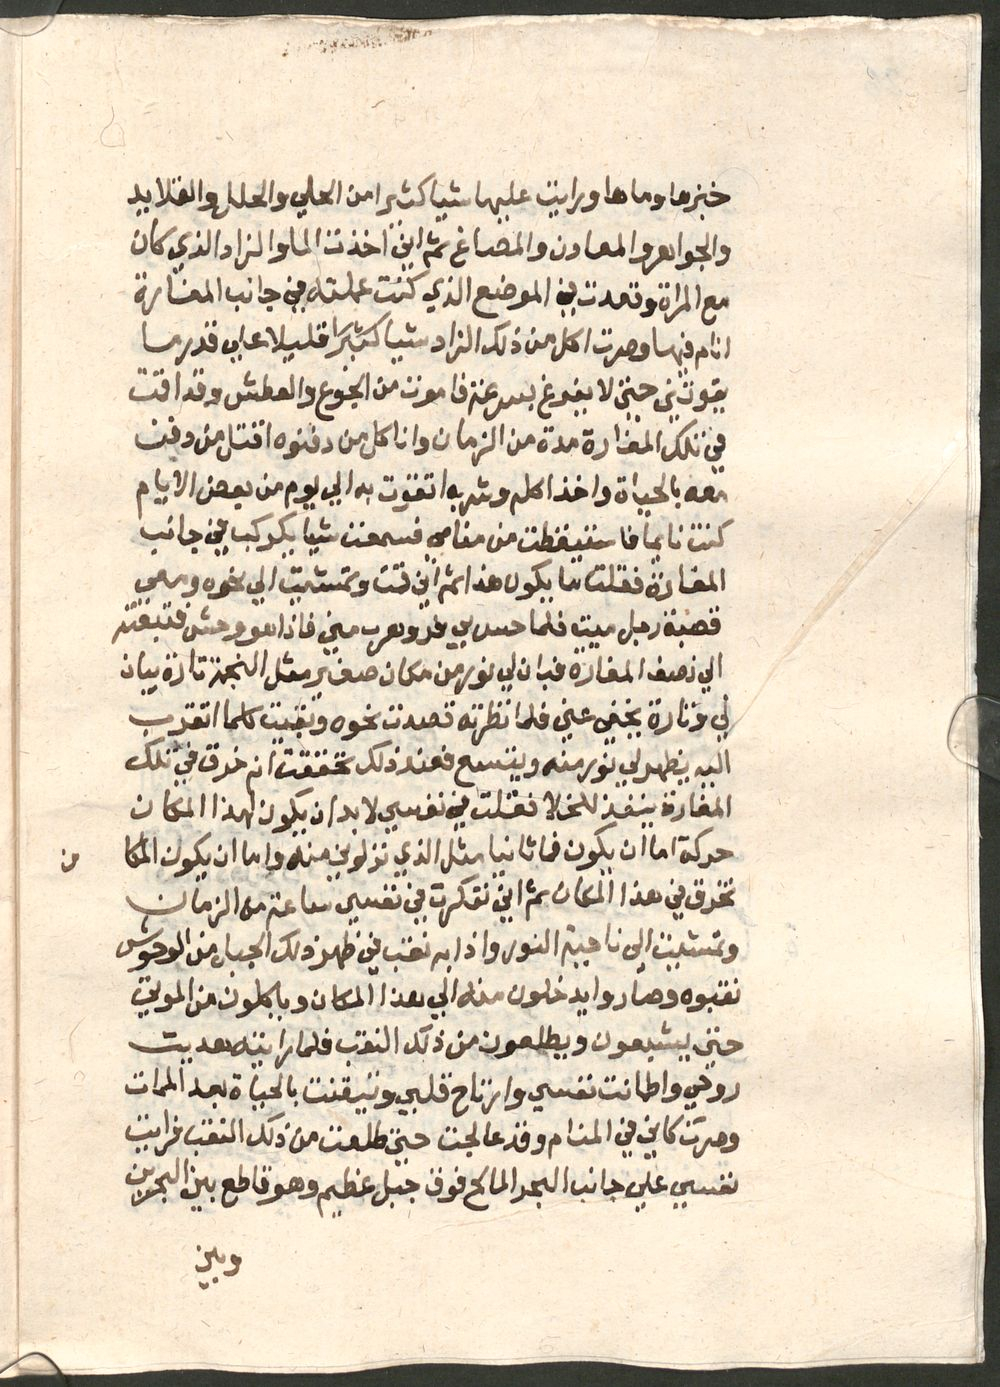 خبزها وماها ورايت عليها شيا كثيرا من الحلي والحلل والقلايد
والجواهر والمعادن والمصاغ ثم اني اخذت الما والزاد الذي كان
مع المراة وقعدت في الموضع الذي كنت عملته في جانب المغارة
انام فيها وصرت اكل من ذلك الزاد شيا كثيرا قليلا علي قدر ما
يقوتني حتي لا يفرغ بسرعة فاموت من الجوع والعطش وقد اقمت
في تلك المغارة مدة من الزمان وانا كل من دفنوه اقتل من دفن
معه بالحياة واخذ اكله وشربه اتقوت به الي يوم من بعض الايام
كنت نايما فاستيقظت من منامي فسمعت شيا يكركب في جانب
المغارة فقلت ما يكون هذا ثم اني قمت وتمشيت الي نحوه ومعي
قصبة رجل ميت فلما حس بي فر وهرب مني فاذا هو وحش فتبعته
الي نصف المغارة فبان لي نور من مكان صغير مثل النجمة تارة يبان
لي وتارة يخفي عني فلما نظرته قصدت نحوه وبقيت كلما اتقرب
اليه يظهر لي نور منه ويتسع فعند ذلك تحققت انه خرق في تلك
المغارة ينفذ للخلا فقلت في نفسي لا بد ان يكون لهذا المكان
حركة اما ان يكون فما ثانيا مثل الذي نزلوني منه واما ان يكون المكا
ن
تخرق في هذا المكان ثم اني تفكرت في نفسي ساعة من الزمان
وتمشيت الي ناحية النور واذا به نقب في ظهر ذلك الجبل من الوحوش
نقبوه وصاروا يدخلون منه الي هذا المكان وياكلون من الموتي
حتي يشبعون ويطلعون من ذلك النقب فلما رايته هديت
روحي واطمانت نفسي وارتاح قلبي وتيقنت بالحياة بعد الممات
وصرت كاني في المنام وقد عالجت حتي طلعت من ذلك النقب فرايت
نفسي علي جانب البحر المالح فوق جبل عظيم وهو قاطع بين البحرين
وبين